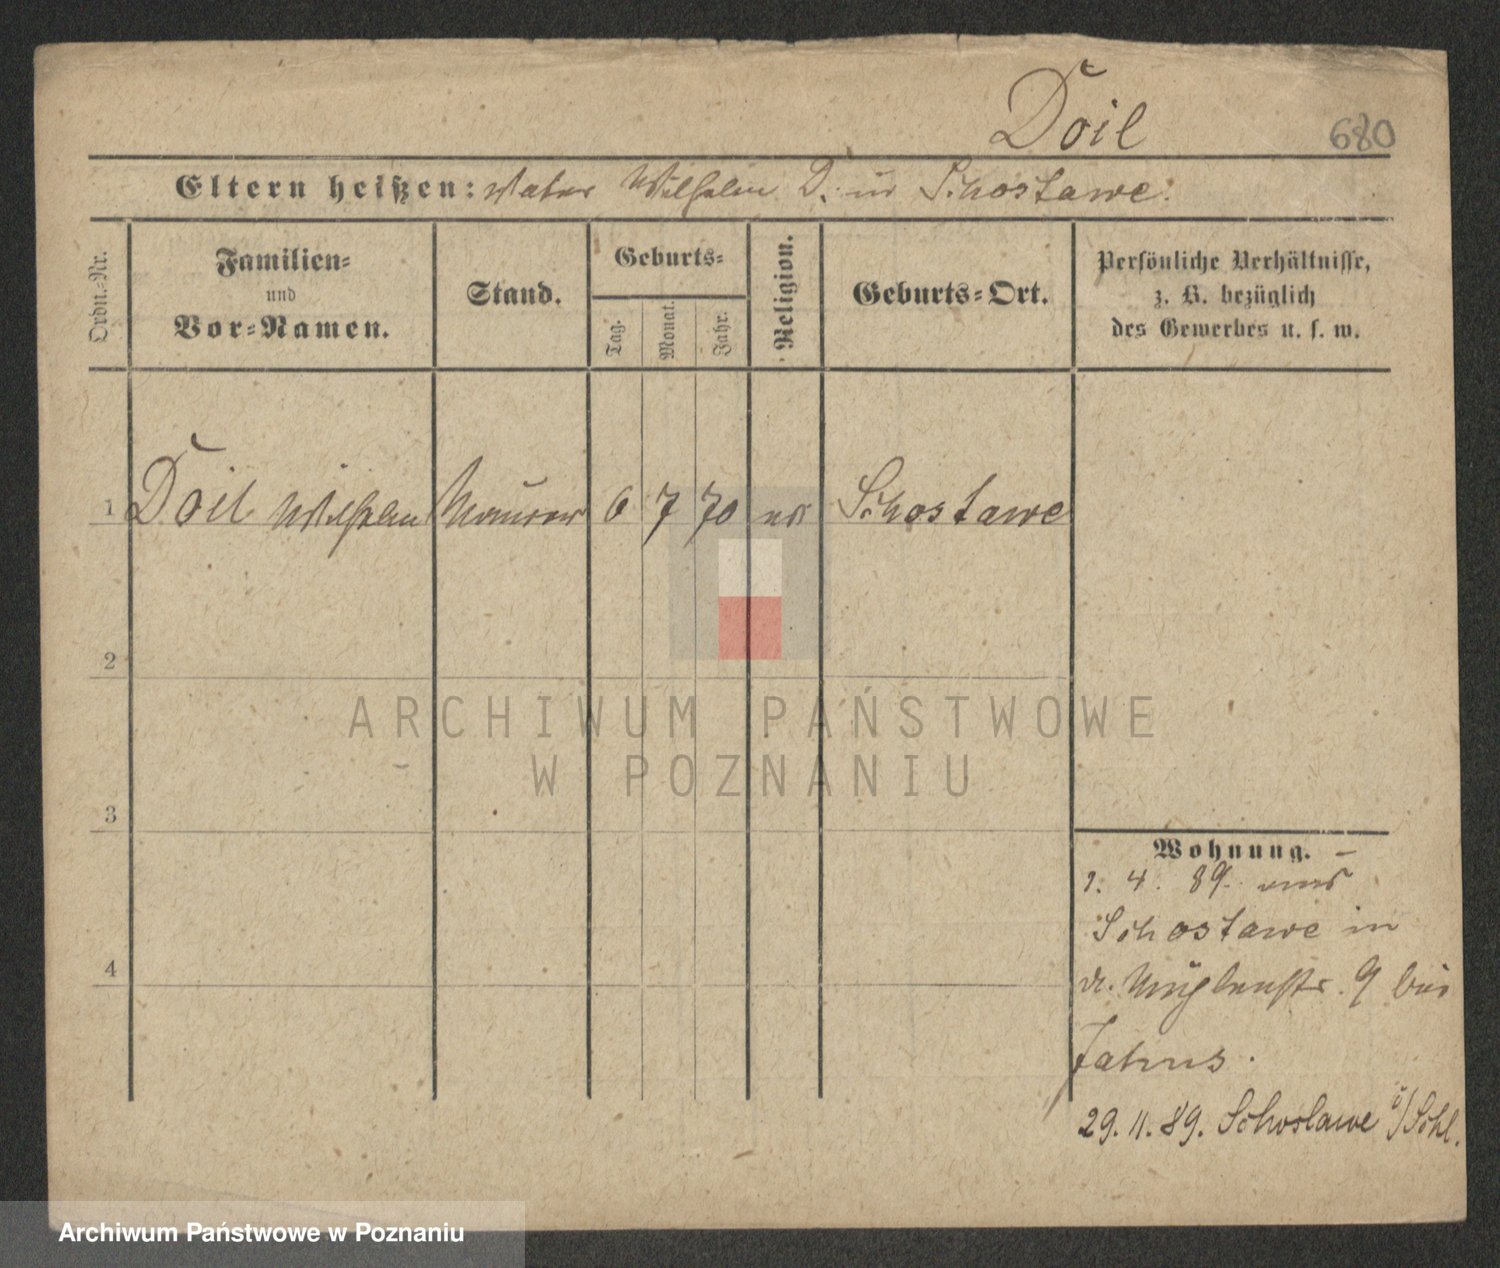 Doil
680
Eltern heißen: Vater Wilhelm D. in Schostawe.
Ordn.-Nr.
Familien-
und
Vor-Namen.
Stand.
Geburts-
Tag.
Monat.
Jahr.
Religion.
Geburts-Ort.
Persönliche Verhältnisse,
z. B. bezüglich
des Gewerbes u. s. w.
1 Doil Wilhelm Maurer 6 7 70 Schostawe
2
3
4
ARCHIWUM PAŃSTWOWE
W POZNANIU
Wohnung.
1. 4. 89. aus
Schostawe in
9 bei
29. 11. 89. Schostawe i/Schl.
Archiwum Państwowe w Poznaniu